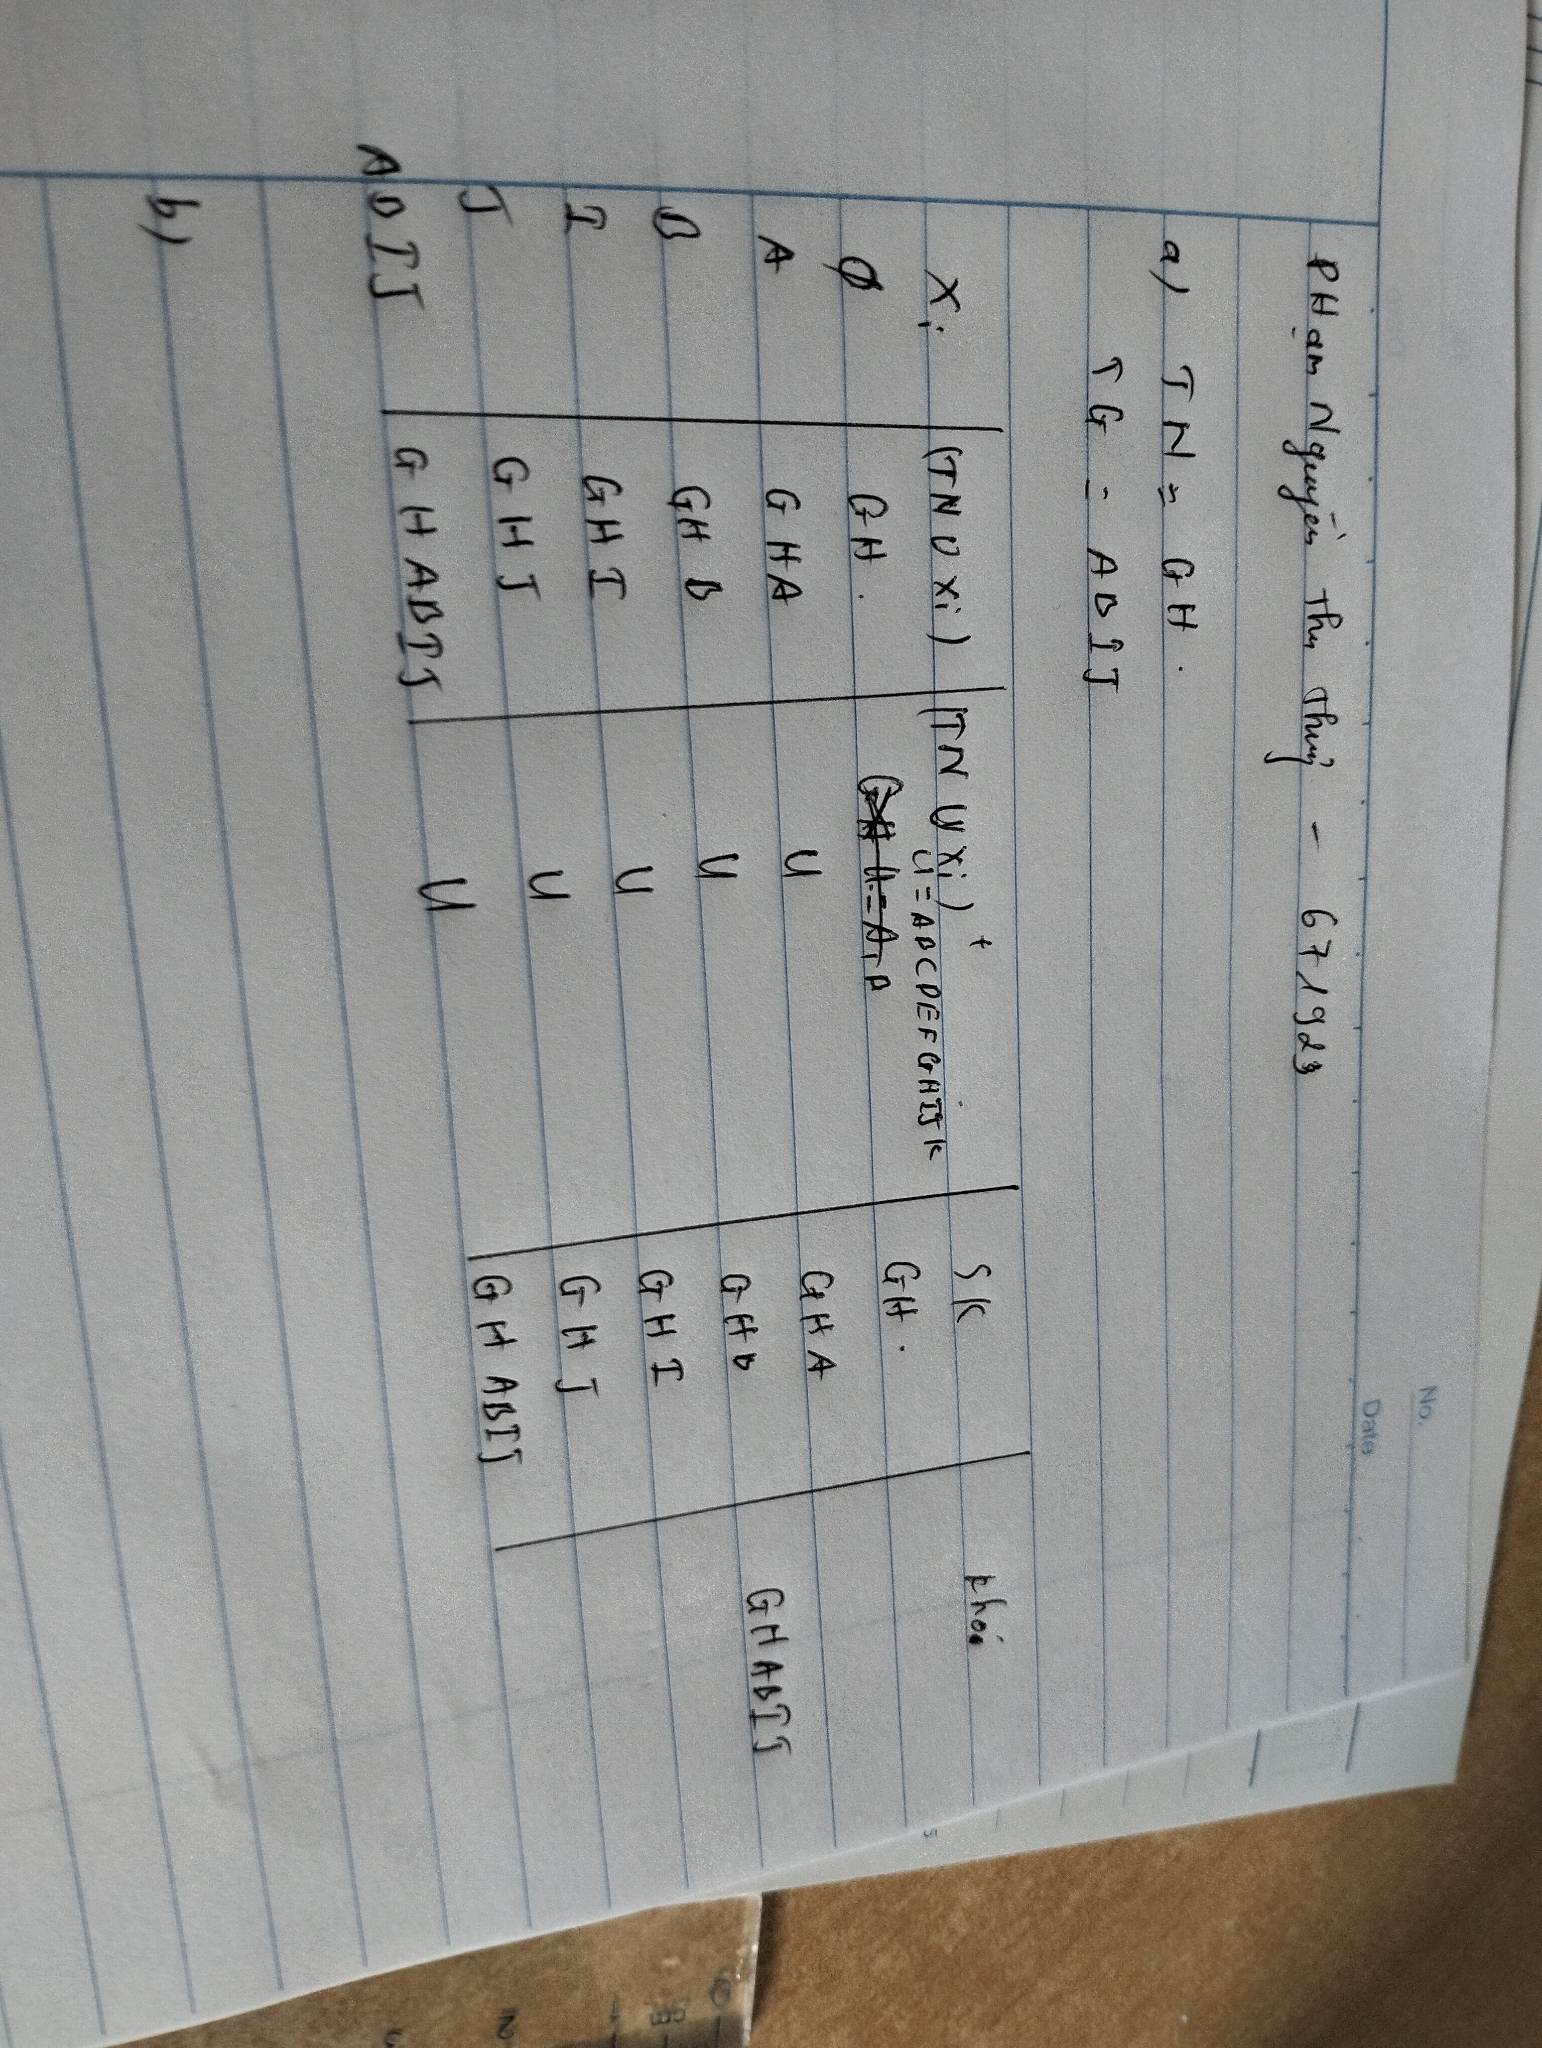 No.
Date
PHạm Nguyễn Thu Thuỷ - 671923
a) TN = GH.
TG = ABIJ
Xi (TN U Xi) (TN U Xi)+ SK khoá
∅ GH. U = ABCDEFGHIJK GH.
A GHA U GHA
B GHB U GHB GHABIJ
I GHI U GHI
J GHJ U GHJ
ABIJ GHABIJ U GHABIJ
b)